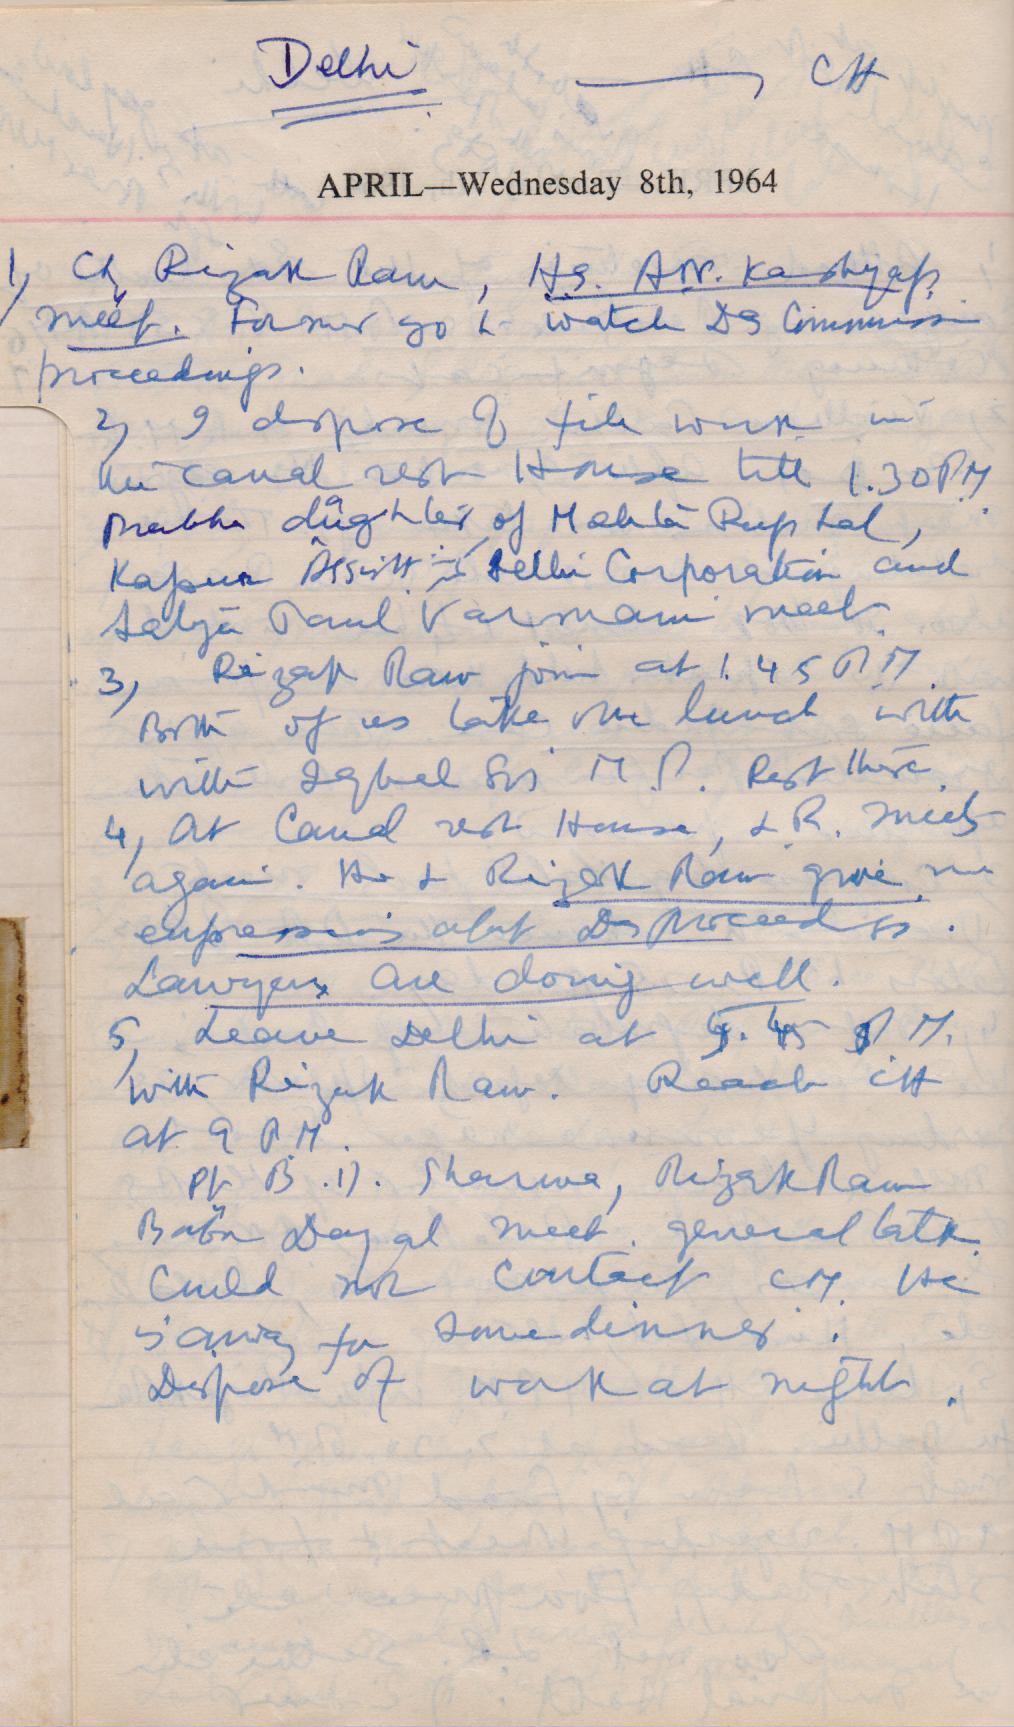 Delhi — CH
APRIL—Wednesday 8th, 1964
1, Ch Rizak Ram, H.S. A.N. Kashyap
meet. Former go to watch DS Commission
proceedings.
2, I dispose of file work in
the canal rest House till 1.30 PM.
Prabha daughter of Mehta Rup Lal,
Kapur Assistt in Delhi Corporation and
Satya Paul Varmani meet.
3, Rizak Ram join at 1.45 P.M.
Both of us take our lunch with
with Iqbal Singh M.P. Rest there.
4, At Canal rest House, L R. meets
again. He & Rizak Ram give me
expressions abt Ds proceedings.
Lawyers are doing well.
5, Leave Delhi at 4.45 P.M.
with Rizak Ram. Reach CH
at 9 P.M.
Pt B.D. Sharma, Rizak Ram
Babu Dayal meet. general talk.
Could not contact CM. He
is away for some dinner.
Dispose of work at night.